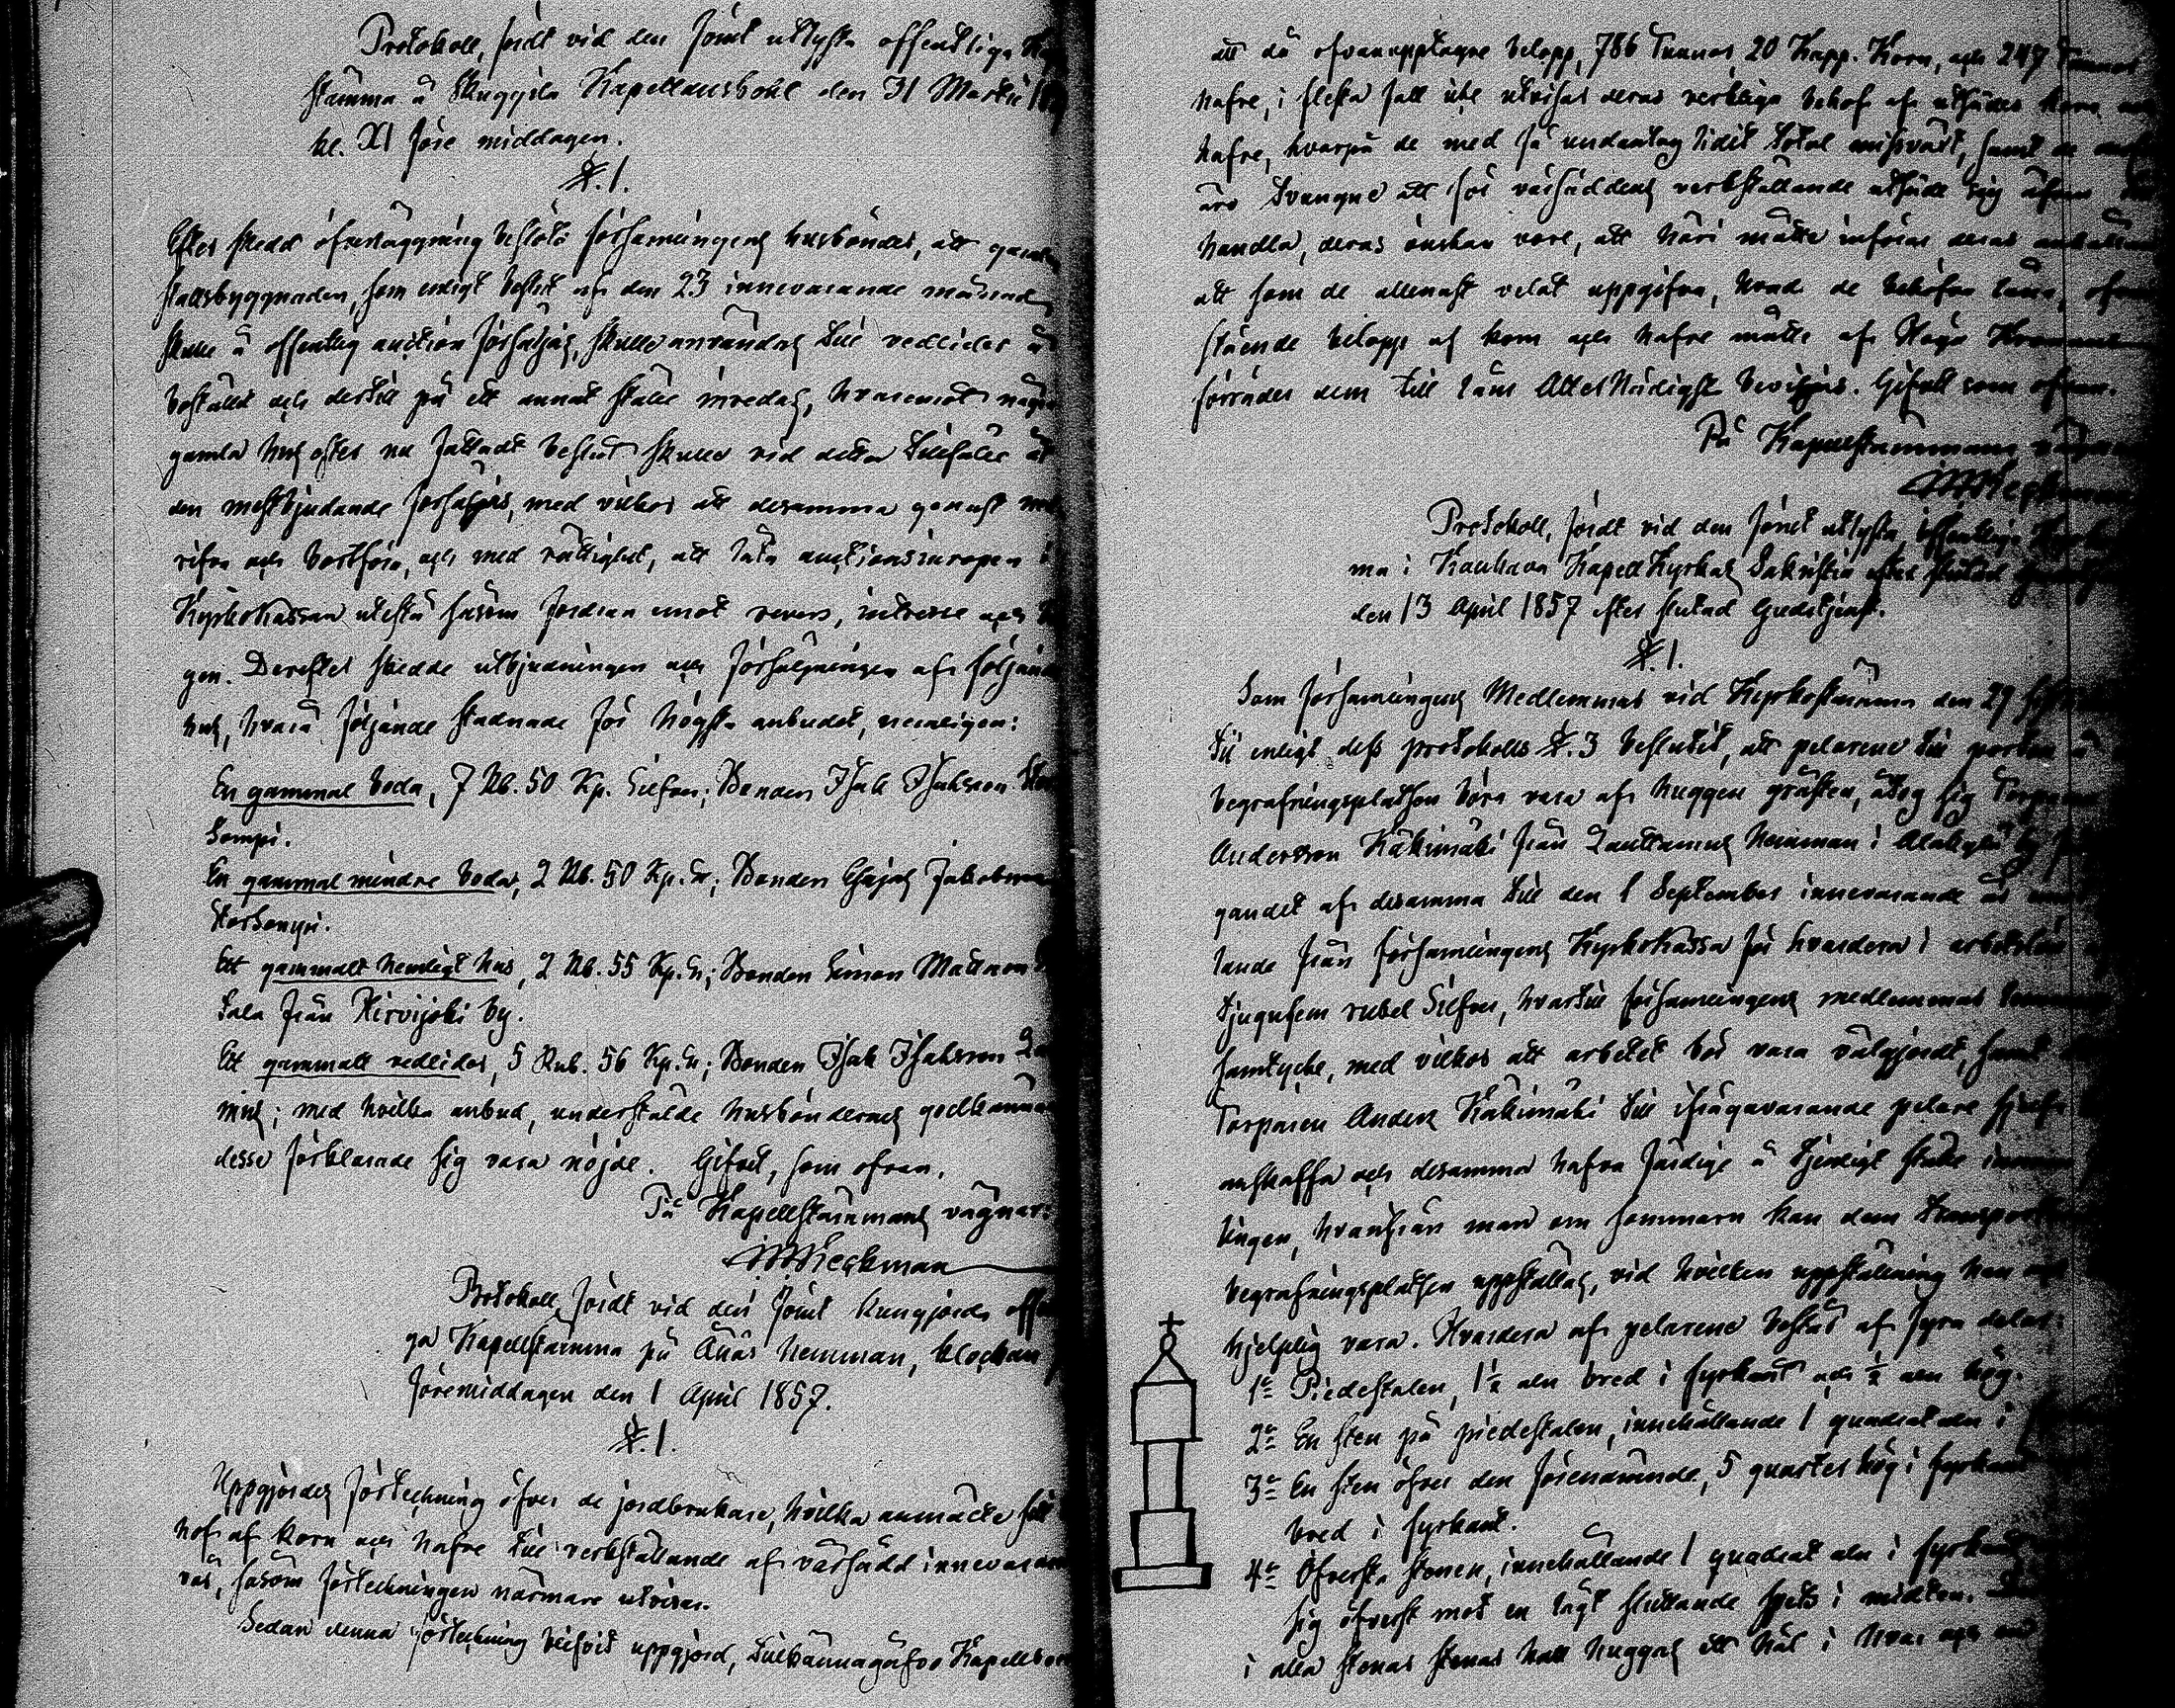 Protokoll, fördt vid den förut utlysta offentliga
stämma å Skuggila Kapellansbohl den 31 Martii
kl. XI före middagen.
§. 1.
Efter skedd öfverläggning beslöto församlingens husbönder, att gamla
stallsbyggnaden, som enligt beslut af den 23 innevarande månad
skulle å offentlig auction försäljas, skulle användas till vedlider å
bostället och dertill på ett annat ställe inredas, hvaremot några
gamla hus efter nu fattadt beslut skulle vid detta tillfälle åt
den mestbjudande försäljas, med vilkor att desamma genast
rifva och bortföra, och med rättighet, att låta auctionsinropen i
Kyrkokassan utestå såsom fordran emot revers, intresse och
gen. Derefter skedde utbjudningen och försäljningen af följande
hus, hvarå följande stadnade för högsta anbudet, nemligen:
En gammal boda, 7 Rub. 50 Kp. Silfver; Bonden Isak Isaksson
Sompi.
En gammal mindre boda, 2 Rub. 50 Kp. Sr; Bonden Esajas Jakobsson
Storsompi.
Ett gammalt hemligt hus, 2 Rub. 55 Kp. Sr; Bonden Simon Mattsson
Sala från Hirvijoki by.
Ett gammalt vedlider, 5 Rub. 56 Kp. Sr; Bonden Isak Isaksson
mus; med hvilka anbud, underställde husböndernas godkännande
desse förklarade sig vara nöjde. Gifvet, som ofvan,
På Kapellstämmans vägnar:
Heckman
Protokoll, fördt vid den förut kungjorda
ga Kapellstämma på Ånäs hemman, klockan
föremiddagen den 1 April 1857.
§. 1.
Uppgjordes förteckning öfver de jordbrukare, hvilka anmälte sitt
hof af korn och hafre till verkställande af vårsådd innevarande
vår, såsom förteckningen närmare utvisar.
Sedan denna förteckning blifvit uppgjord, tillkännagåfvo
att då ofvanupptagne belopp, 786 Tunnor 20 Kapp. Korn, och 247 Tunnor
hafre, i flesta fall icke utvisar deras verkliga behof af utsädes korn
hafre, hvarpå de med få undantag lidit total missväxt, samt de
äro tvungne att för vårsåddens verkställande utsäde sig äfven
handla, deras önskan vore, att häri måtte införas deras anhållan
att som de allenast velat uppgifva, hvad de behöfva låna,
stående belopp af korn och hafre måtte af Höga Kronans
förråder dem till låns Allernådigst beviljas. Gifvet som ofvan.
På Kapellstämmans vägnar
Heckman
Protokoll, fördt vid den förut utlysta, offentliga
ma i Kauhava Kapell Kyrkas Sakristia efter slutad
den 13 April 1857 efter slutad Gudstjenst.
§. 1.
Som församlingens Medlemmar vid Kyrkostämma den 29
till enligt dess protokolls §. 3 beslutit, att pelarene till porten å
begrafningsplatsen böra vara af huggen gråsten, åtog sig Torparen
Andersson Käkimäki från Lauttamus hemman i Alakylä by
gandet af desamma till den 1 September innevarande år
lande från församlingens Kyrkokassa för hvardera i arbetslön
tjugufem rubel Silfver, hvartill församlingens medlemmar
samtycke, med vilkor att arbetet bör vara välgjordt, samt
Torparen Anders Käkimäki till ifrågavarande pelare sjelf
anskaffa och desamma hafva färdige å tjenligt ställe
tingen, hvarifrån man om sommarn kan dem transportera
begrafningsplatsen uppställas, vid hvilken uppställning han
hjelplig vara. Hvardera af pelarene består af fyra delar:
1o Piedestalen, 1½ aln bred i fyrkant och ½ aln hög.
2o En sten på piedestalen, innehållande 1 quadrat aln i
3o En sten öfver den förenämnde, 5 quarter hög i fyrkant
bred i fyrkant.
4o Öfversta stenen, innehållande 1 quadrat aln i fyrkant
sig öfverst mot en lågt sluttande spets i midten.
i alla stenar stenar skall huggas ett hål i hvar och en